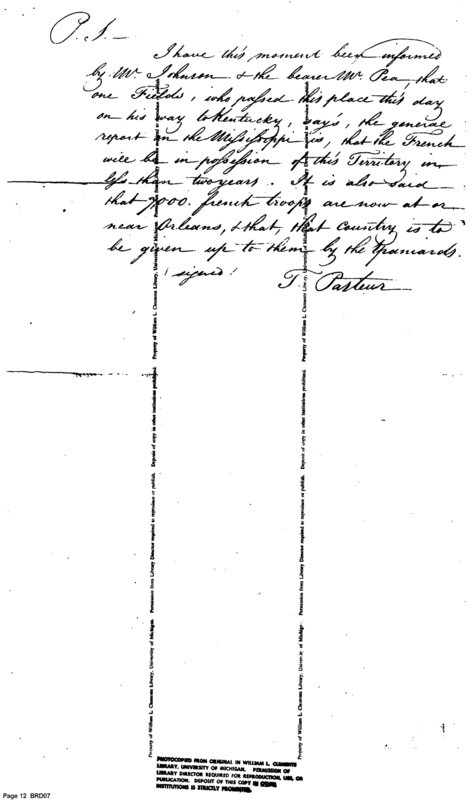 P.S.—
I have this moment been informed
by Mr Johnson & the bearer Mr Pea, that
one Fields, who passed this place this day
on his way to Kentucky, say's, the general
report on the Missisoppi is, that the French
will be in possession of this Territory in
less than two years. It is also said
that 7000. french troops are now at or
near Orleans, & that, that Country is to
be given up to them by the Spaniards.
(signed) T Pasteur
Property of William L. Clements Library, University of Michigan. Permission from Library Director required to reproduce or publish. Deposit of copy in other institutions prohibited.
Property of William L. Clements Library,
Property of William L. Clements Library, University of Michigan. Permission from Library Director required to reproduce or publish. Deposit of copy in other institutions prohibited.
Property of William L. Clements Library,
PHOTOCOPIED FROM ORIGINAL IN WILLIAM L. CLEMENTS
LIBRARY, UNIVERSITY OF MICHIGAN. PERMISSION OF
LIBRARY DIRECTOR REQUIRED FOR REPRODUCTION, USE, OR
PUBLICATION. DEPOSIT OF THIS COPY IN OTHER
INSTITUTIONS IS STRICTLY PROHIBITED.
Page 12 BRD07